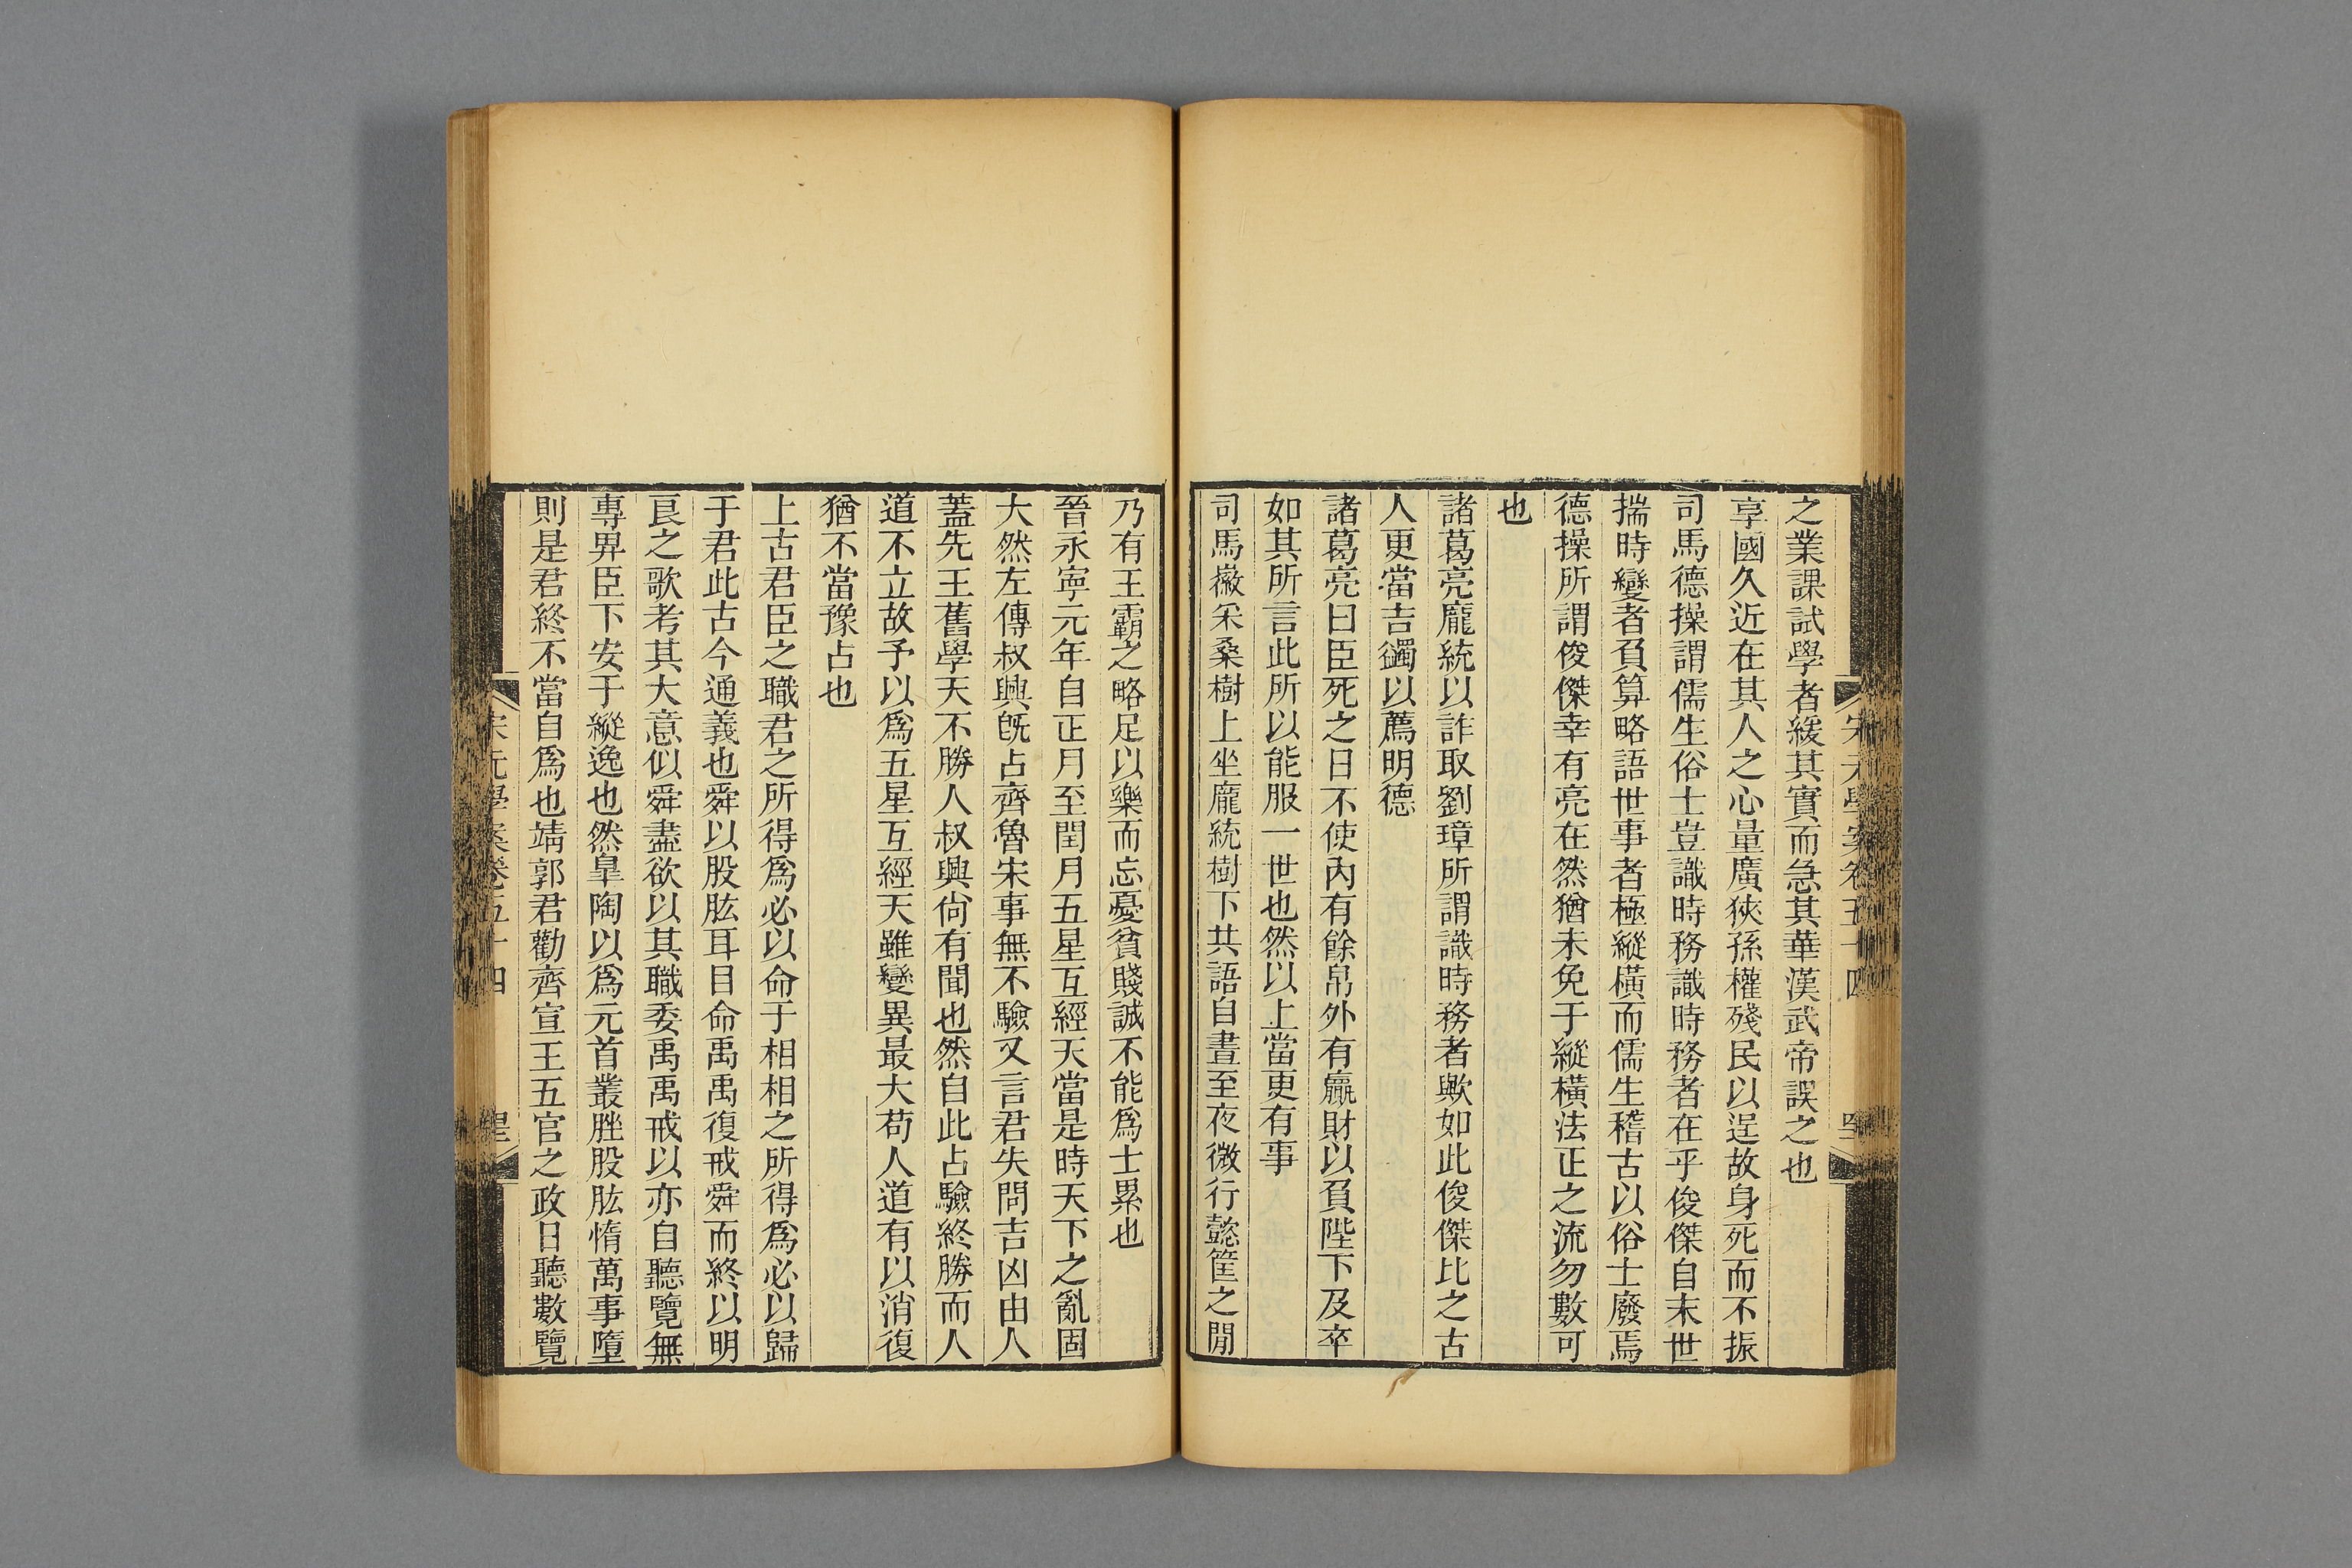 宋元學案卷五十四
之業課試學者緩其實而急其華漢武帝誤之也
享國久近在其人之心量廣狹孫權殘民以逞故身死而不振
司馬德操謂儒生俗士豈識時務識時務者在乎俊傑自末世
揣時變者負算略語世事者極縱橫而儒生稽古以俗士廢焉
德操所謂俊傑幸有亮在然猶未免于縱橫法正之流勿數可
也
諸葛亮龐統以詐取劉璋所謂識時務者歟如此俊傑比之古
人更當吉蠲以薦明德
諸葛亮曰臣死之日不使內有餘帛外有贏財以負陛下及卒
如其所言此所以能服一世也然以上當更有事
司馬徽采桑樹上坐龐統樹下共語自晝至夜微行懿筐之閒
乃有王霸之略足以樂而忘憂貧賤誠不能爲士累也
晉永寧元年自正月至閏月五星互經天當是時天下之亂固
大然左傳叔興旣占齊魯宋事無不驗又言君失問吉凶由人
蓋先王舊學天不勝人叔興尙有聞也然自此占驗終勝而人
道不立故予以爲五星互經天雖變異最大苟人道有以消復
猶不當豫占也
上古君臣之職君之所得爲必以命于相相之所得爲必以歸
于君此古今通義也舜以股肱耳目命禹禹復戒舜而終以明
良之歌考其大意似舜盡欲以其職委禹禹戒以亦自聽覽無
專畀臣下安于縱逸也然皐陶以爲元首叢脞股肱惰萬事墮
則是君終不當自爲也靖郭君勸齊宣王五官之政日聽數覽
宋元學案卷五十四